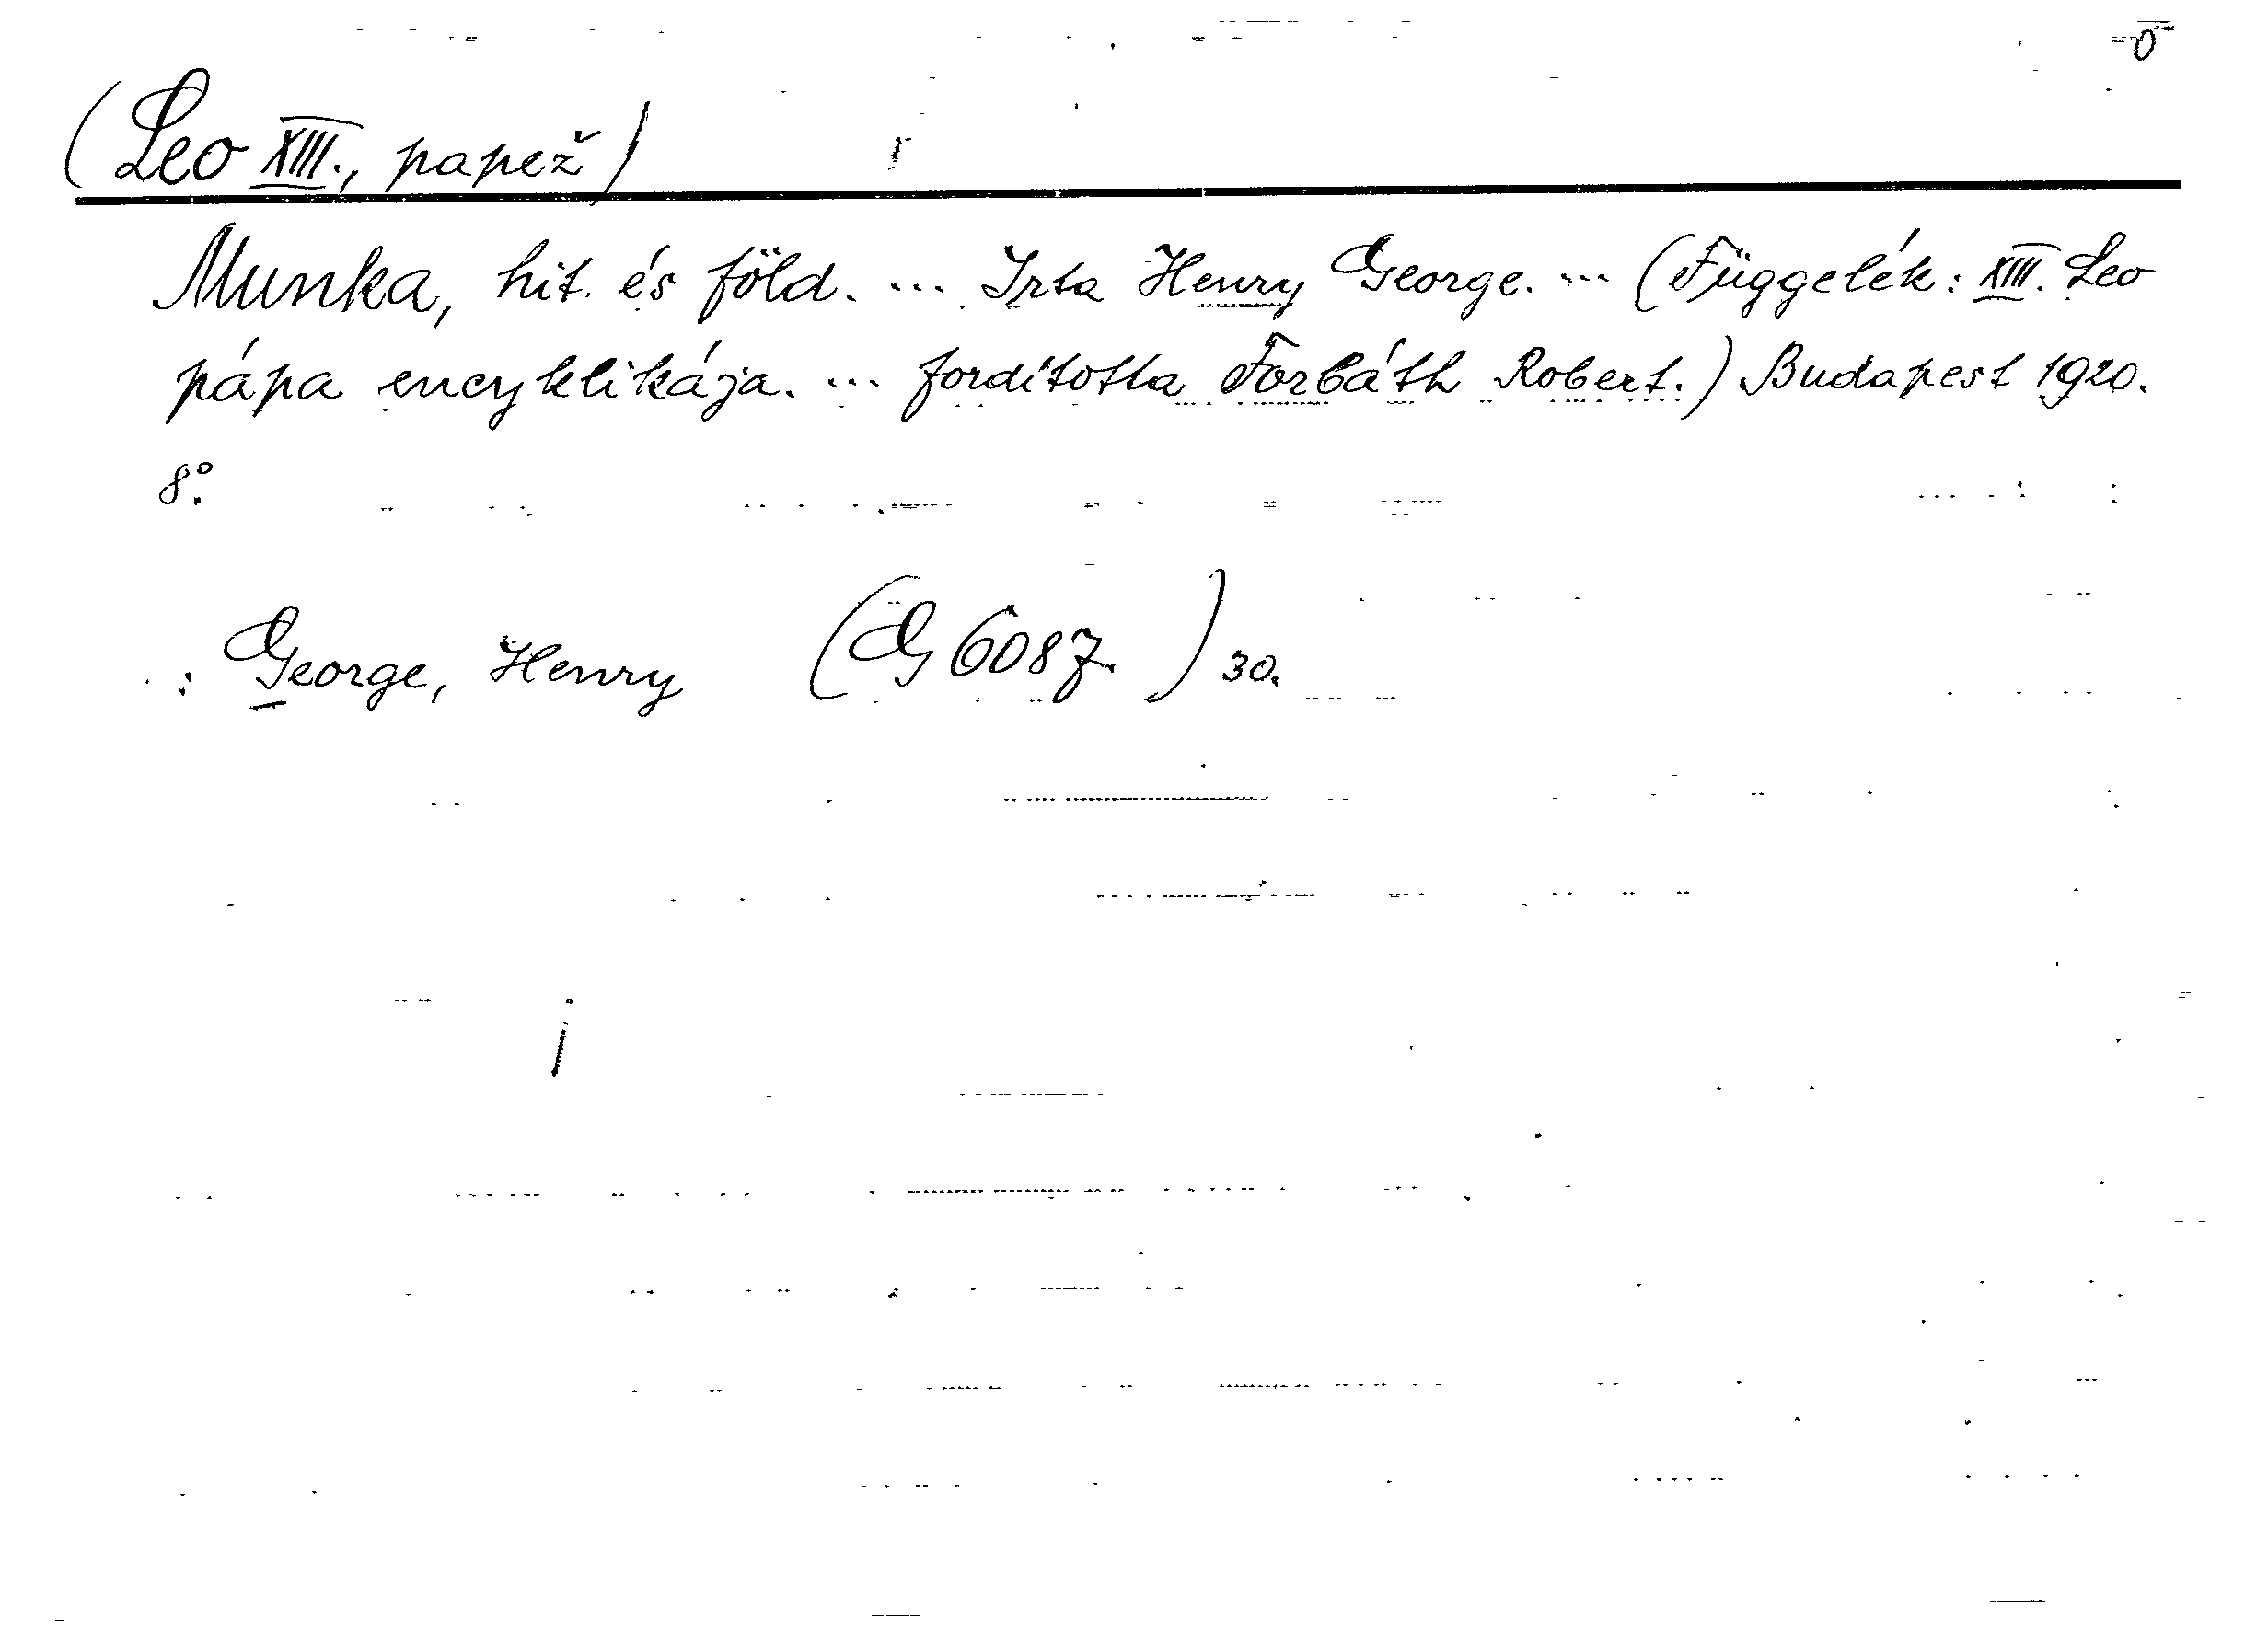 0
(Leo XIII., papež)
Munka, hit. és föld. ... Irta Henry George. ... (Függelék: XIII. Leo
pápa encyklikája. ... fordította Forbáth Robert.) Budapest 1920.
8°.
: George, Henry (G 6087. ) 30.